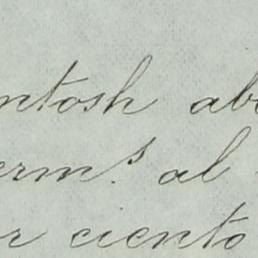 ntosh ab
erm.s al
r ciento